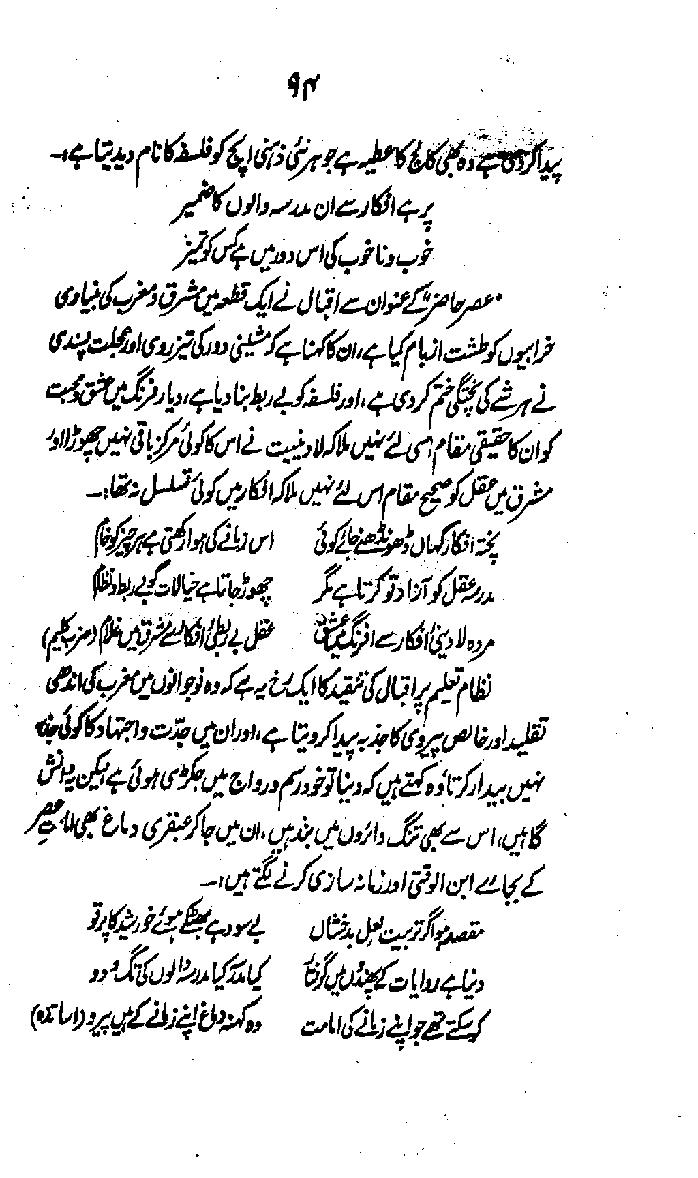 ۹۴
پیدا کردی ہے وہ بھی کالج کا عطیہ ہے جو ہر نئی ذہنی اپج کو فلسفہ کا نام دیدیتا ہے:۔
پر ہے افکار سے ان مدرسہ والوں کا ضمیر
خوب و ناخوب کی اس دور میں ہے کس کو تمیز
"عصر حاضر" کے عنوان سے اقبال نے ایک قطعہ میں مشرق و مغرب کی بنیادی
خرابیوں کو طشت از بام کیا ہے، ان کا کہنا ہے کہ مشینی دور کی تیز روی اور عجلت پسندی
نے ہر شے کی پختگی ختم کر دی ہے، اور فلسفہ کو بے ربط بنا دیا ہے، دیار فرنگ میں عشق و محبت
کو ان کا حقیقی مقام اسی لئے نہیں ملا کہ لادینیت نے اس کا کوئی مرکز باقی نہیں چھوڑا اور
مشرق میں عقل کو صحیح مقام اس لئے نہیں ملا کہ افکار میں کوئی تسلسل نہ تھا:۔
پختہ افکار کہاں ڈھونڈھنے جائے کوئی اس زمانے کی ہوا رکھتی ہے ہر چیز کو خام
مدرسہ عقل کو آزاد تو کرتا ہے مگر چھوڑ جاتا ہے خیالات کو بے ربط و نظام
مردہ لادینیٔ افکار سے افرنگ میں عشق عقل بے ربطیٔ افکار سے مشرق میں غلام (ضرب کلیم)
نظام تعلیم پر اقبال کی تنقید کا ایک رخ یہ ہے کہ وہ نوجوانوں میں مغرب کی اندھی
تقلید اور خالص پیروی کا جذبہ پیدا کر دیتا ہے، اور ان میں جدّت و اجتہاد کا کوئی جذبہ
نہیں بیدار کرتا، وہ کہتے ہیں کہ دنیا تو خود رسم و رواج میں جکڑی ہوئی ہے لیکن یہ دانش
گاہیں، اس سے بھی تنگ دائروں میں بند ہیں، ان میں جا کر عبقری دماغ بھی امامتِ عصر
کے بجائے ابن الوقتی اور زمانہ سازی کرنے لگتے ہیں:۔
مقصد ہو اگر تربیت لعل بدخشاں بے سود ہے بھٹکے ہوئے خورشید کا پرتو
دنیا ہے روایات کے پھندوں میں گرفتار کیا مدرسہ کیا مدرسہ والوں کی تگ و دو
کر سکتے تھے جو اپنے زمانے کی امامت وہ کہنہ دماغ اپنے زمانے کے ہیں پیرو (اساتذہ)